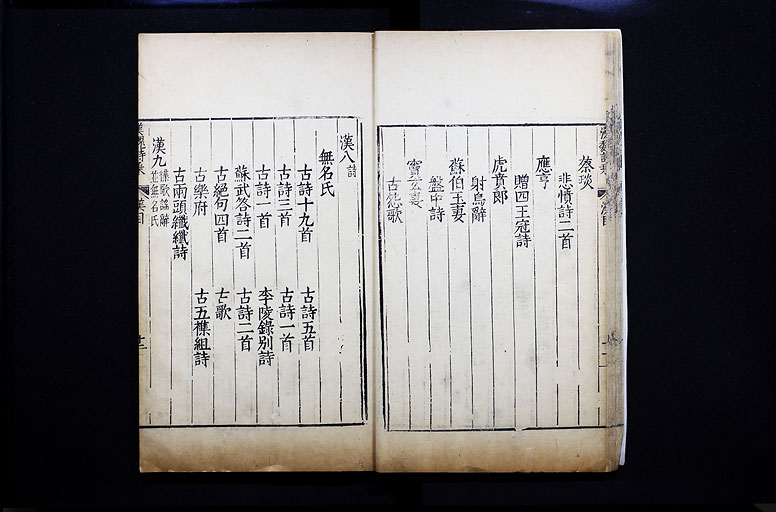 蔡琰
悲憤詩二首
應亨
贈四王冠詩
虎賁郎
射烏辭
蘇伯玉妻
盤中詩
竇玄妻
古怨歌
漢八詩
無名氏
古詩十九首 古詩五首
古詩三首 古詩一首
古詩一首 李陵錄別詩
蘇武答詩二首 古詩二首
古絕句四首 古歌
古樂府 古五襍組詩
古兩頭纖纖詩
漢九雜歌謠辭並無名氏